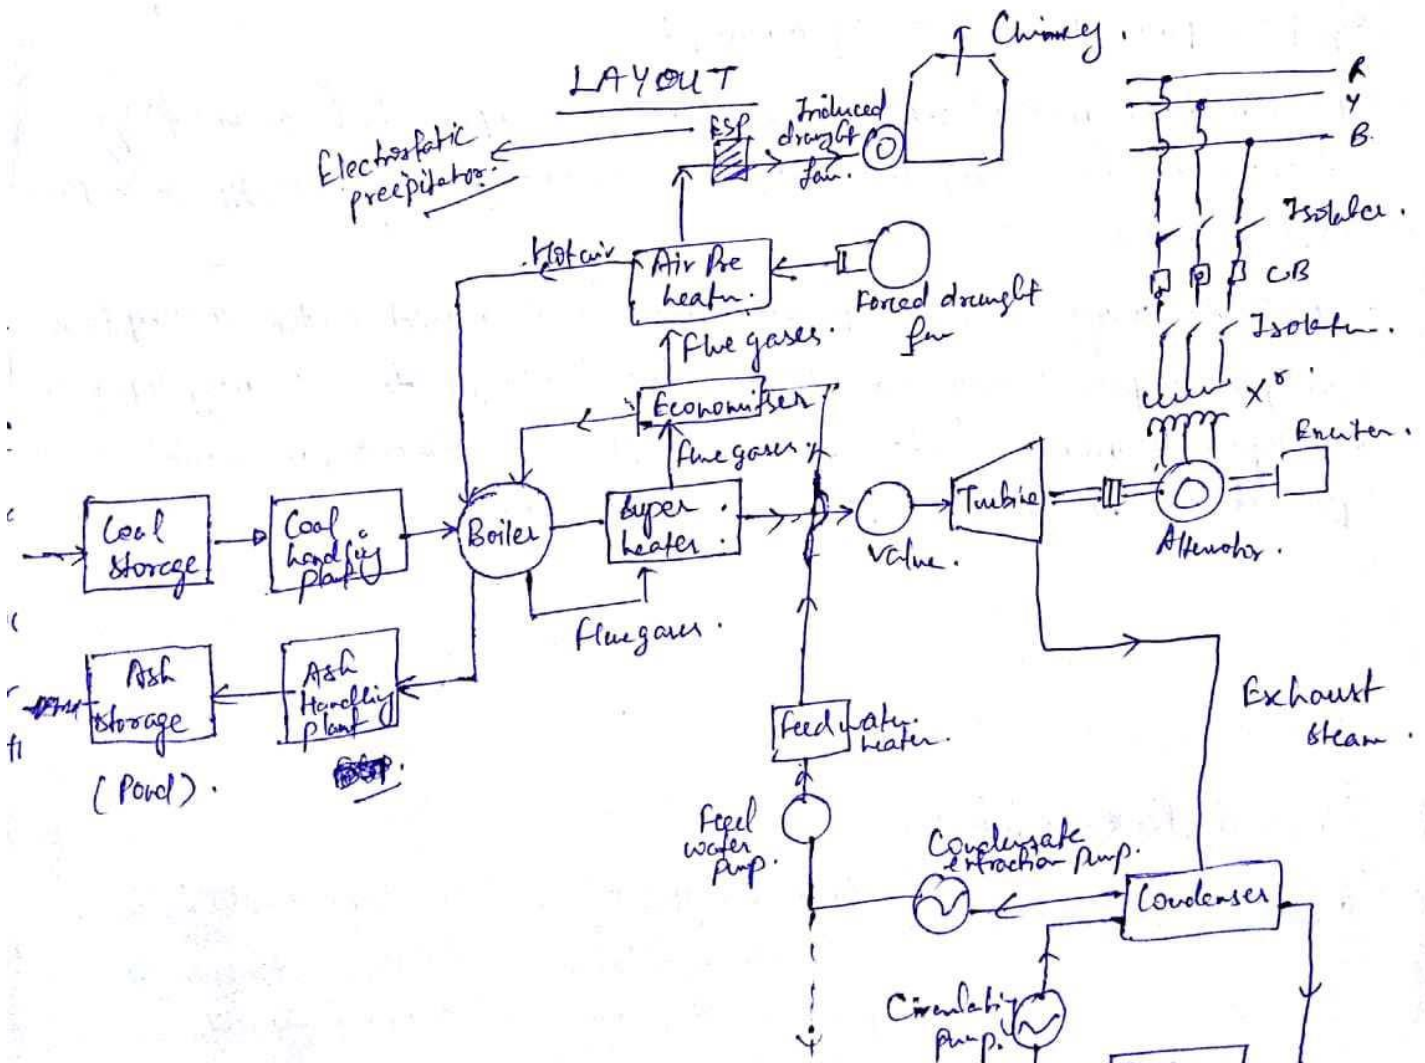 LAYOUT
Chimney.
Electrostatic
precipitator.
ESP
Induced
draught
fan.
R
Y
B.
Isolator.
CB
Isolator.
Hot air
Air Pre
heater.
Forced draught
fan
Flue gases.
Economiser
Flue gases.
Exciter.
Coal
Storage
Coal
handling
plant
Boiler
Super
heater.
Valve.
Turbine
Alternator.
Flue gases.
Ash
storage
(Pond).
Ash
Handling
plant
Feed water
heater.
Exhaust
steam.
Feed
water
pump.
Condensate
extraction pump.
Condenser
Circulating
pump.